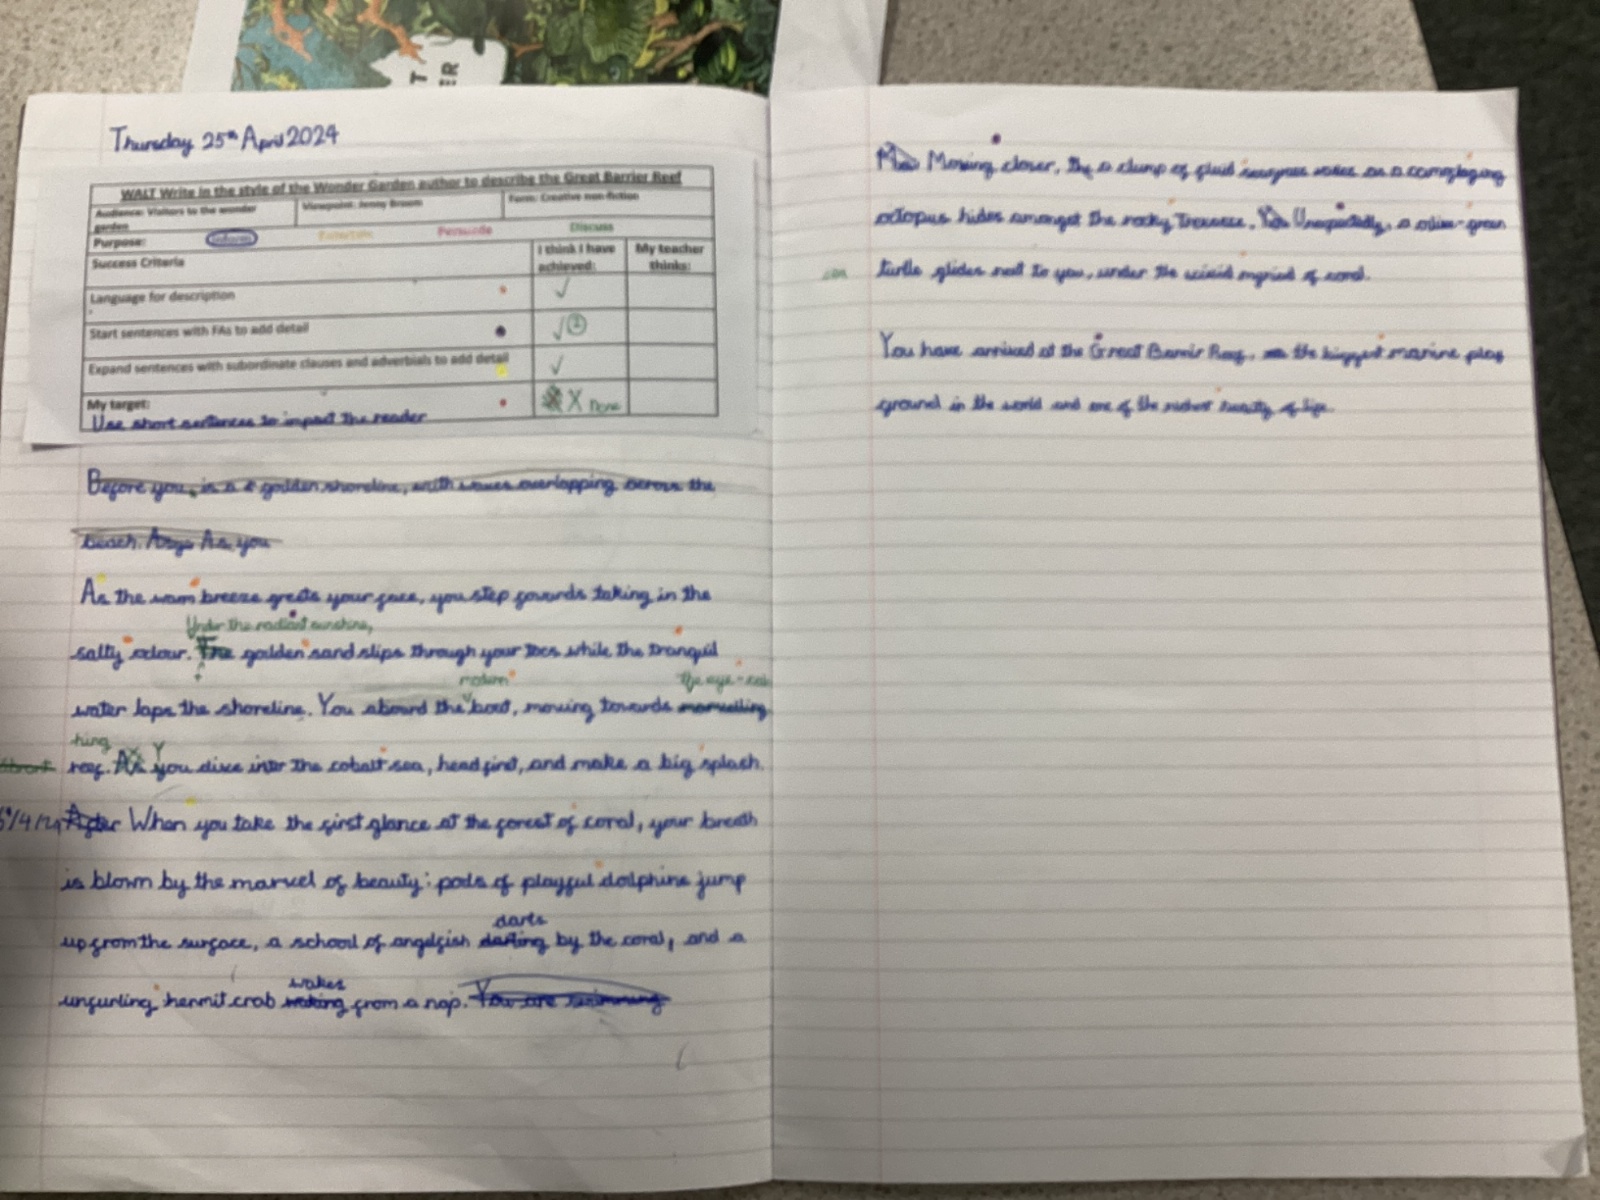 T
ER
Thursday 25th April 2024
WALT Write in the style of the Wonder Garden author to describe the Great Barrier Reef
Audience: Visitors to the wonder garden
Viewpoint: Jenny Broom
Form: Creative non-fiction
Purpose: Inform Entertain Persuade Discuss
Success Criteria
I think I have achieved:
My teacher thinks:
Language for description ✓
Start sentences with FAs to add detail ✓ 2
Expand sentences with subordinate clauses and adverbials to add detail ✓
My target: X none
Use short sentences to impact the reader
Before you, is a golden shoreline, with waves overlapping across the
beach. As you
As the warm breeze greets your face, you step forwards taking in the
Under the radiant sunshine,
salty odour. The golden sand slips through your toes while the tranquil
modern the eye-catc
water laps the shoreline. You aboard the boat, moving towards marvelling
hing
vibrant reef. As Y you dive into the cobalt sea, headfirst, and make a big splash.
After When you take the first glance at the forest of coral, your breath
is blown by the marvel of beauty: pods of playful dolphins jump
darts
up from the surface, a school of angelfish darting by the coral, and a
wakes
unfurling hermit crab waking from a nap. You are swimming
Moving closer, the a clump of fluid waves as a camoflaging
octopus hides amongst the rocky. Unexpectedly, a olive-green
turtle glides next to you, under the myriad of coral.
You have arrived at the Great Barrir Reef, the biggest marine play
ground in the world and one of the richest of life.